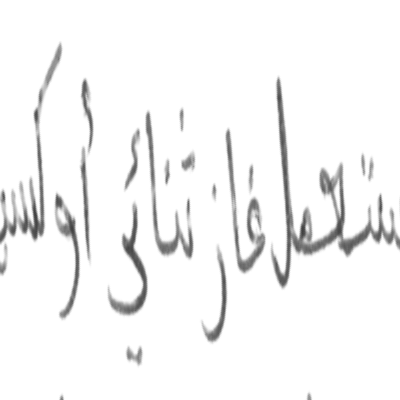 ستعمل غاز ثنائي أوكسي